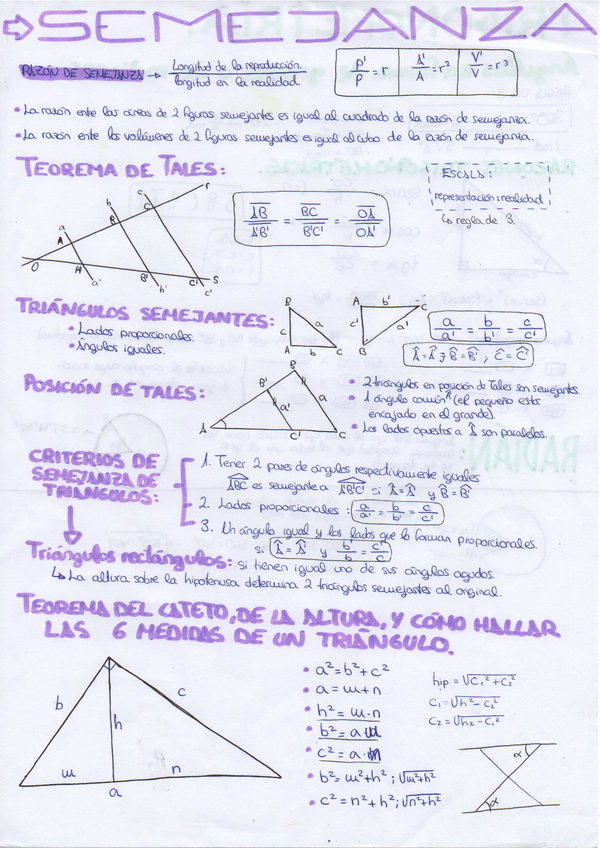 ⇨SEMEJANZA
RAZÓN DE SEMEJANZA → Longitud de la reproducción. / longitud en la realidad.
P'/P = r | A'/A = r² | V'/V = r³
• La razón entre las áreas de 2 figuras semejantes es igual al cuadrado de la razón de semejanza.
• La razón entre los volúmenes de 2 figuras semejantes es igual al cubo de la razón de semejanza.
TEOREMA DE TALES:
r
a b c
A B C
O A' B' C' S
a' b' c'
AB/A'B' = BC/B'C' = OA/OA'
ESCALA:
representación:realidad
↳ regla de 3.
TRIÁNGULOS SEMEJANTES:
• Lados proporcionales.
• Ángulos iguales.
B c a A b C
A b' C c' a' B
a/a' = b/b' = c/c'
Â=Â' ; B̂=B̂' , Ĉ=Ĉ'
POSICIÓN DE TALES:
B B' a' a A C' C
• 2 triángulos en posición de Tales son semejantes.
• 1 ángulo común  (el pequeño está
encajado en el grande).
• Los lados opuestos a  son paralelos.
CRITERIOS DE
SEMEJANZA DE
TRIANGULOS:
1. Tener 2 pares de ángulos respectivamente iguales
ABC es semejante a A'B'C' si Â=Â' y B̂=B̂'
2. Lados proporcionales : a/a' = b/b' = c/c'
3. Un ángulo igual y los lados que lo forman proporcionales.
si Â=Â' y b/b' = c/c'
Triángulos rectángulos: si tienen igual uno de sus ángulos agudos.
↳ La altura sobre la hipotenusa determina 2 triángulos semejantes al original.
TEOREMA DEL CATETO, DE LA ALTURA, Y CÓMO HALLAR
LAS 6 MEDIDAS DE UN TRIÁNGULO.
b c
h
m n
a
• a²=b²+c²
• a=m+n
• h²=m·n
• b²=a·m
• c²=a·n
• b²=m²+h² ; √m²+h²
• c²=n²+h² ; √n²+h²
hip=√C₁²+C₂²
C₁=√h²-C₂²
C₂=√h²-C₁²
α
α